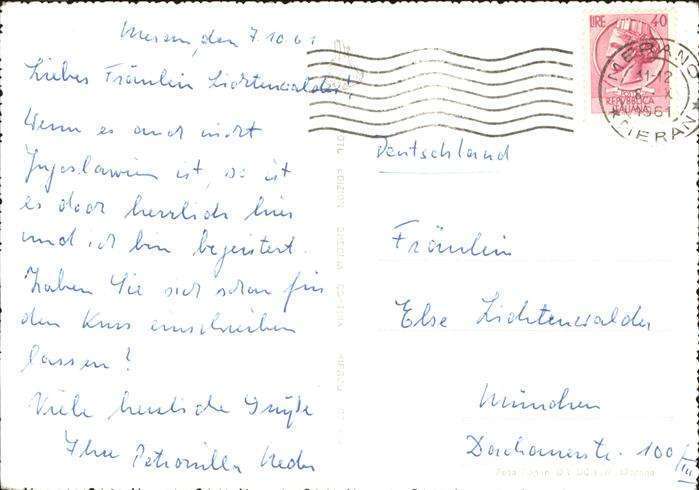 Meran, den 7.10.61
Liebes Fräulein Lichtenwalder!
Wenn es auch nicht
Jugoslawien ist, so ist
es doch herrlich hier
und ich bin begeistert.
Haben Sie sich schon für
den Kurs einschreiben
lassen?
Viele herzliche Grüße
Ihre Petronilla
LIRE 40
REPVBBLICA
ITALIANA
MERANO
11-12
X
1961
MERAN
Deutschland
Fräulein
Else Lichtenwalder
München
Dachauerstr. 100/III